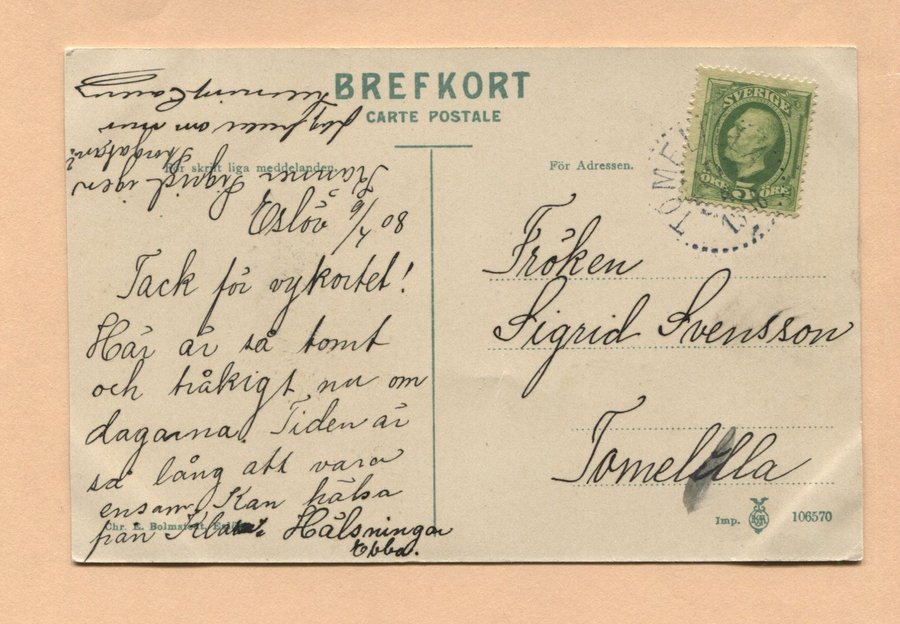 BREFKORT
CARTE POSTALE
För skriftliga meddelanden.
För Adressen.
SVERIGE
ÖRE 5 ÖRE
Eslöv 6/7 08
Tack för vykortet!
Här är så tomt
och tråkigt nu om
dagarna. Tiden är
så lång att vara
ensam. Kan hälsa
från Hälsningar
Ebba.
Kommer Sigrid igen
om
Chr. E. Bolmstedt,
Fröken
Sigrid Svensson
Tomelilla
Imp.
106570